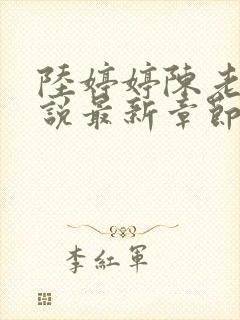 陸婷婷陳老
說最新章節
李紅軍